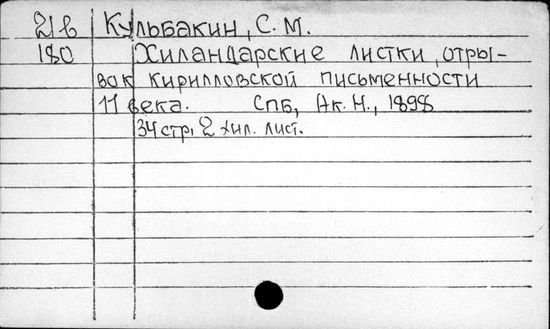 21 в Кульбакин, С. М.
180 Хиландарские листки, отры-
вок кирилловской письменности
11 века. СПБ, Ак. Н., 1898
34 стр, 2 хил. лист.